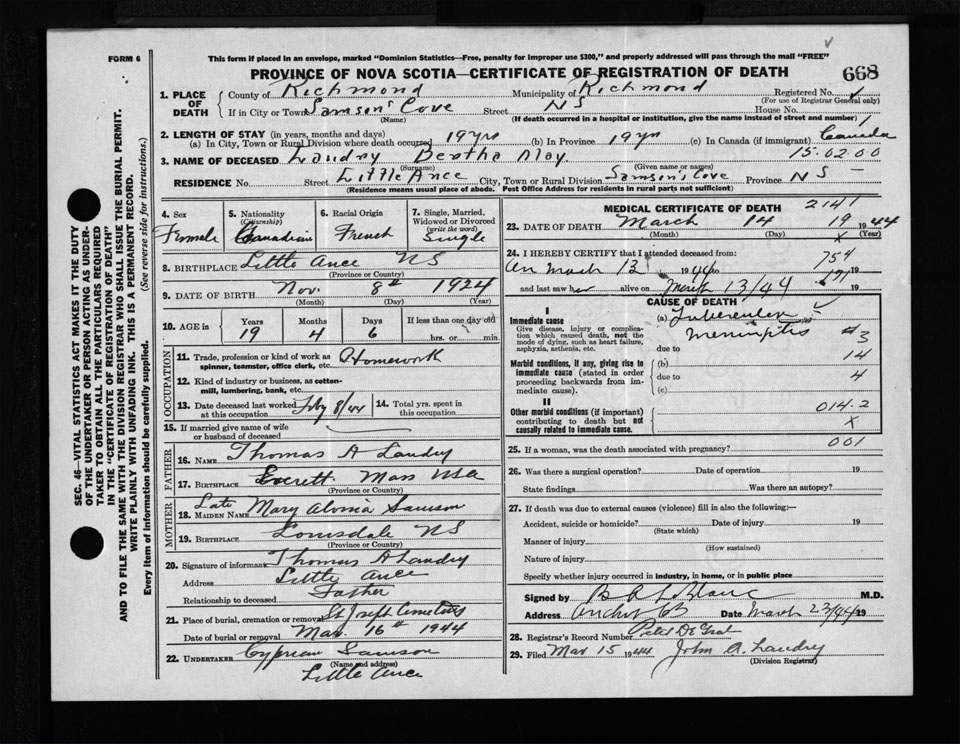 FORM 6
This form if placed in an envelope, marked "Dominion Statistics—Free, penalty for improper use $300," and properly addressed will pass through the mail "FREE"
PROVINCE OF NOVA SCOTIA—CERTIFICATE OF REGISTRATION OF DEATH
668
1. PLACE OF DEATH
County of Richmond Municipality of Richmond Registered No.
(For use of Registrar General only)
If in City or Town Samson's Cove Street NS House No.
(Name) (If death occurred in a hospital or institution, give the name instead of street and number)
2. LENGTH OF STAY (in years, months and days)
(a) In City, Town or Rural Division where death occurred 19 yrs (b) In Province 19 yrs (c) In Canada (if immigrant) Canada
15-02-00
3. NAME OF DECEASED Landry Bertha May
(Surname) (Given name or names)
RESIDENCE No. Street Little Ance City, Town or Rural Division Samson's Cove Province NS
(Residence means usual place of abode. Post Office Address for residents in rural parts not sufficient)
4. Sex Female
5. Nationality (Citizenship) Canadian
6. Racial Origin French
7. Single, Married, Widowed or Divorced (write the word) Single
8. BIRTHPLACE Little Ance NS
(Province or Country)
9. DATE OF BIRTH Nov. 8th 1924
(Month) (Day) (Year)
10. AGE in Years 19 Months 4 Days 6 If less than one day old
hrs. or min.
OCCUPATION
11. Trade, profession or kind of work as spinner, teamster, office clerk, etc. Homework
12. Kind of industry or business, as cotton-mill, lumbering, bank, etc.
13. Date deceased last worked at this occupation Feby 8/44
14. Total yrs. spent in this occupation
15. If married give name of wife or husband of deceased
FATHER
16. NAME Thomas A Landry
17. BIRTHPLACE Everett Mass USA
(Province or Country)
MOTHER
18. MAIDEN NAME Late Mary Alvina Samson
19. BIRTHPLACE Louisdale NS
(Province or Country)
20. Signature of informant Thomas A Landry
Address Little Ance
Relationship to deceased Father
21. Place of burial, cremation or removal St Joseph Cemetery
Date of burial or removal Mar. 16th 1944
22. UNDERTAKER Cyprian Samson
(Name and address)
Little Ance
MEDICAL CERTIFICATE OF DEATH
2141
23. DATE OF DEATH March 14 1944
(Month) (Day) (Year)
24. I HEREBY CERTIFY that I attended deceased from:
754
on March 12 1944 19
171
and last saw her alive on March 13/44 19
CAUSE OF DEATH
I
Immediate cause
Give disease, injury or complication which caused death, not the mode of dying, such as heart failure, asphyxia, asthenia, etc.
(a) Tubercular Meningitis
#3
due to
14
Morbid conditions, if any, giving rise to immediate cause (stated in order proceeding backwards from immediate cause).
(b)
due to
4
(c)
II
Other morbid conditions (if important) contributing to death but not causally related to immediate cause.
014.2
X
25. If a woman, was the death associated with pregnancy? 001
26. Was there a surgical operation? Date of operation 19
State findings Was there an autopsy?
27. If death was due to external causes (violence) fill in also the following:—
Accident, suicide or homicide? Date of injury 19
(State which)
Manner of injury
(How sustained)
Nature of injury
Specify whether injury occurred in industry, in home, or in public place
Signed by B A LeBlanc M.D.
Address Arichat CB Date March 23/44 19
28. Registrar's Record Number
29. Filed Mar 15 1944 John A. Landry
(Division Registrar)
SEC. 46—VITAL STATISTICS ACT MAKES IT THE DUTY OF THE UNDERTAKER OR PERSON ACTING AS UNDERTAKER TO OBTAIN ALL THE PARTICULARS REQUIRED IN THE "CERTIFICATE OF REGISTRATION OF DEATH"
AND TO FILE THE SAME WITH THE DIVISION REGISTRAR WHO SHALL ISSUE THE BURIAL PERMIT.
WRITE PLAINLY WITH UNFADING INK. THIS IS A PERMANENT RECORD.
Every item of information should be carefully supplied. (See reverse side for instructions.)